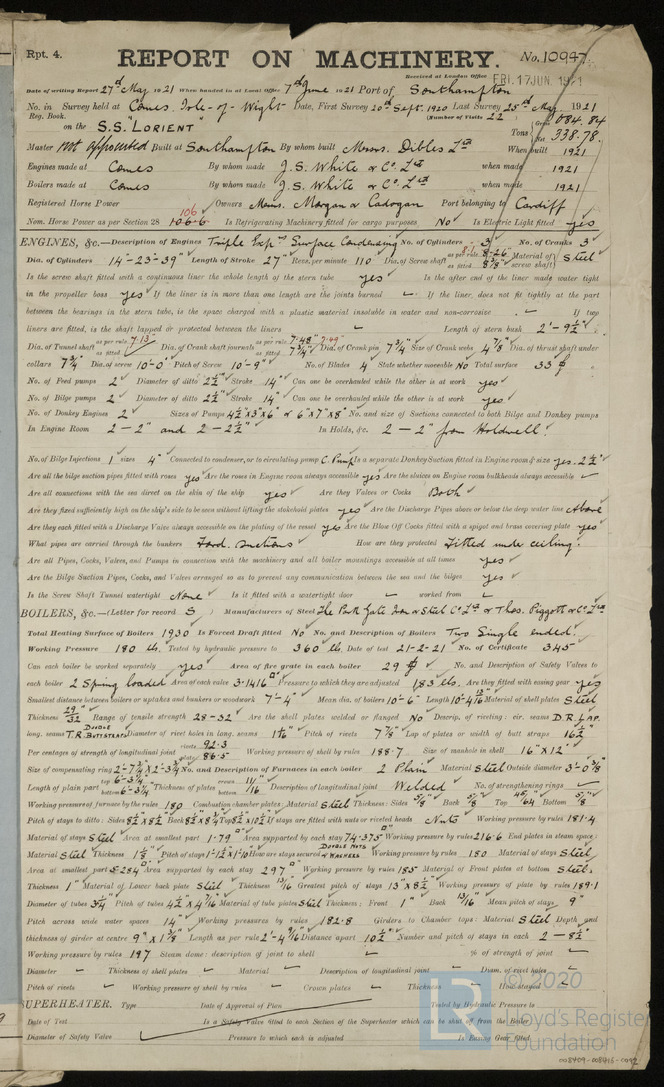 Rpt. 4.
REPORT ON MACHINERY.
No. 10947.
Received at London Office FRI. 17 JUN. 1921
Date of writing Report 27th May 1921 When handed in at Local Office 7th June 1921 Port of Southampton
No. in Survey held at Cowes. Isle-of-Wight Date, First Survey 20th Sept. 1920 Last Survey 25th May 1921
Reg. Book. (Number of Visits 22
on the S.S. "LORIENT" Tons Gross 1084.84 Net 338.78.
Master not appointed Built at Southampton By whom built Messrs. Dibles Ltd When built 1921
Engines made at Cowes By whom made J.S. White & Co. Ltd when made 1921
Boilers made at Cowes By whom made J.S. White & Co. Ltd when made 1921
Registered Horse Power Owners Messrs. Morgan & Cadogan Port belonging to Cardiff
Nom. Horse Power as per Section 28 106 106.6 Is Refrigerating Machinery fitted for cargo purposes No Is Electric Light fitted yes
ENGINES, &c.—Description of Engines Triple Expn Surface Condensing No. of Cylinders 3 No. of Cranks 3
Dia. of Cylinders 14"-23"-39" Length of Stroke 27" Revs. per minute 110 Dia. of Screw shaft as per rule 8.26 as fitted 8 5/8" Material of screw shaft Steel
Is the screw shaft fitted with a continuous liner the whole length of the stern tube yes Is the after end of the liner made water tight
in the propeller boss yes If the liner is in more than one length are the joints burned — If the liner does not fit tightly at the part
between the bearings in the stern tube, is the space charged with a plastic material insoluble in water and non-corrosive — If two
liners are fitted, is the shaft lapped or protected between the liners — Length of stern bush 2'-9½"
Dia. of Tunnel shaft as per rule 7.13 as fitted Dia. of Crank shaft journals as per rule 7.48" 7.49" as fitted 7¾" Dia. of Crank pin 7¾" Size of Crank webs 4⅞" Dia. of thrust shaft under
collars 7¾" Dia. of screw 10'-0" Pitch of Screw 10'-9" No. of Blades 4 State whether moveable No Total surface 33
No. of Feed pumps 2 Diameter of ditto 2½" Stroke 14" Can one be overhauled while the other is at work yes
No. of Bilge pumps 2 Diameter of ditto 2½" Stroke 14" Can one be overhauled while the other is at work yes
No. of Donkey Engines 2 Sizes of Pumps 4½"x3"x6" & 6"x7"x8" No. and size of Suctions connected to both Bilge and Donkey pumps
In Engine Room 2-2" and 2-2½" In Holds, &c. 2-2" from Holdwell.
No. of Bilge Injections 1 sizes 4" Connected to condenser, or to circulating pump C. Pump Is a separate Donkey Suction fitted in Engine room & size yes. 2½"
Are all the bilge suction pipes fitted with roses yes Are the roses in Engine room always accessible yes Are the sluices on Engine room bulkheads always accessible —
Are all connections with the sea direct on the skin of the ship yes Are they Valves or Cocks Both
Are they fixed sufficiently high on the ship's side to be seen without lifting the stokehold plates yes Are the Discharge Pipes above or below the deep water line Above
Are they each fitted with a Discharge Valve always accessible on the plating of the vessel yes Are the Blow Off Cocks fitted with a spigot and brass covering plate yes
What pipes are carried through the bunkers Forwd. Suctions How are they protected Fitted under ceiling.
Are all Pipes, Cocks, Valves, and Pumps in connection with the machinery and all boiler mountings accessible at all times yes
Are the Bilge Suction Pipes, Cocks, and Valves arranged so as to prevent any communication between the sea and the bilges yes
Is the Screw Shaft Tunnel watertight None Is it fitted with a watertight door — worked from —
BOILERS, &c.—(Letter for record S ) Manufacturers of Steel The Park Gate Iron & Steel Co. Ltd & Thos. Piggott & Co. Ltd
Total Heating Surface of Boilers 1930 Is Forced Draft fitted No No. and Description of Boilers Two Single ended.
Working Pressure 180 lb. Tested by hydraulic pressure to 360 lb. Date of test 21-2-21 No. of Certificate 345
Can each boiler be worked separately yes Area of fire grate in each boiler 29 No. and Description of Safety Valves to
each boiler 2 Spring loaded Area of each valve 3.1416 Pressure to which they are adjusted 183 lbs. Are they fitted with easing gear yes
Smallest distance between boilers or uptakes and bunkers or woodwork 7'-4" Mean dia. of boilers 10'-6" Length 10'-4 13/16" Material of shell plates Steel
Thickness 29/32" Range of tensile strength 28-32 Are the shell plates welded or flanged No Descrip. of riveting: cir. seams D.R. LAP.
long. seams T.R. DOUBLE BUTT STRAPS Diameter of rivet holes in long. seams 1 1/16" Pitch of rivets 7⅞" Lap of plates or width of butt straps 16½"
Per centages of strength of longitudinal joint rivets 92.3 plate 86.5 Working pressure of shell by rules 188.7 Size of manhole in shell 16"x12"
Size of compensating ring 2'-7¾"x2'-3¾" No. and Description of Furnaces in each boiler 2 Plain Material Steel Outside diameter 3'-0⅜"
Length of plain part top 6'-3¾" bottom 6'-3¾" Thickness of plates crown 11/16" bottom Description of longitudinal joint Welded No. of strengthening rings —
Working pressure of furnace by the rules 180 Combustion chamber plates: Material Steel Thickness: Sides 5/8" Back 5/8" Top 45/64" Bottom 5/8"
Pitch of stays to ditto: Sides 8½"x8½" Back 8½"x8¾" Top 8½"x10½" If stays are fitted with nuts or riveted heads Nuts Working pressure by rules 181.4
Material of stays Steel Area at smallest part 1.79 Area supported by each stay 74.375 Working pressure by rules 216.6 End plates in steam space:
Material Steel Thickness 1⅛" Pitch of stays 1'-1½"x1'-10" How are stays secured DOUBLE NUTS & WASHERS Working pressure by rules 180 Material of stays Steel
Area at smallest part 5.284 Area supported by each stay 297 Working pressure by rules 185 Material of Front plates at bottom Steel.
Thickness 1" Material of Lower back plate Steel Thickness 13/16" Greatest pitch of stays 13"x8½" Working pressure of plate by rules 189.1
Diameter of tubes 3¼" Pitch of tubes 4½"x4 7/16" Material of tube plates Steel Thickness: Front 1" Back 13/16" Mean pitch of stays 9"
Pitch across wide water spaces 14" Working pressures by rules 182.8 Girders to Chamber tops: Material Steel Depth and
thickness of girder at centre 9"x1⅜" Length as per rule 2'-4 9/16" Distance apart 10½" Number and pitch of stays in each 2-8½"
Working pressure by rules 197 Steam dome: description of joint to shell — % of strength of joint —
Diameter — Thickness of shell plates — Material — Description of longitudinal joint — Diam. of rivet holes —
Pitch of rivets — Working pressure of shell by rules — Crown plates — Thickness — How stayed —
SUPERHEATER. Type Date of Approval of Plan Tested by Hydraulic Pressure to
Date of Test Is a Safety Valve fitted to each Section of the Superheater which can be shut off from the Boiler
Diameter of Safety Valve Pressure to which each is adjusted Is Easing Gear fitted
© 2020
Lloyd's Register
Foundation
008409-008415-0092